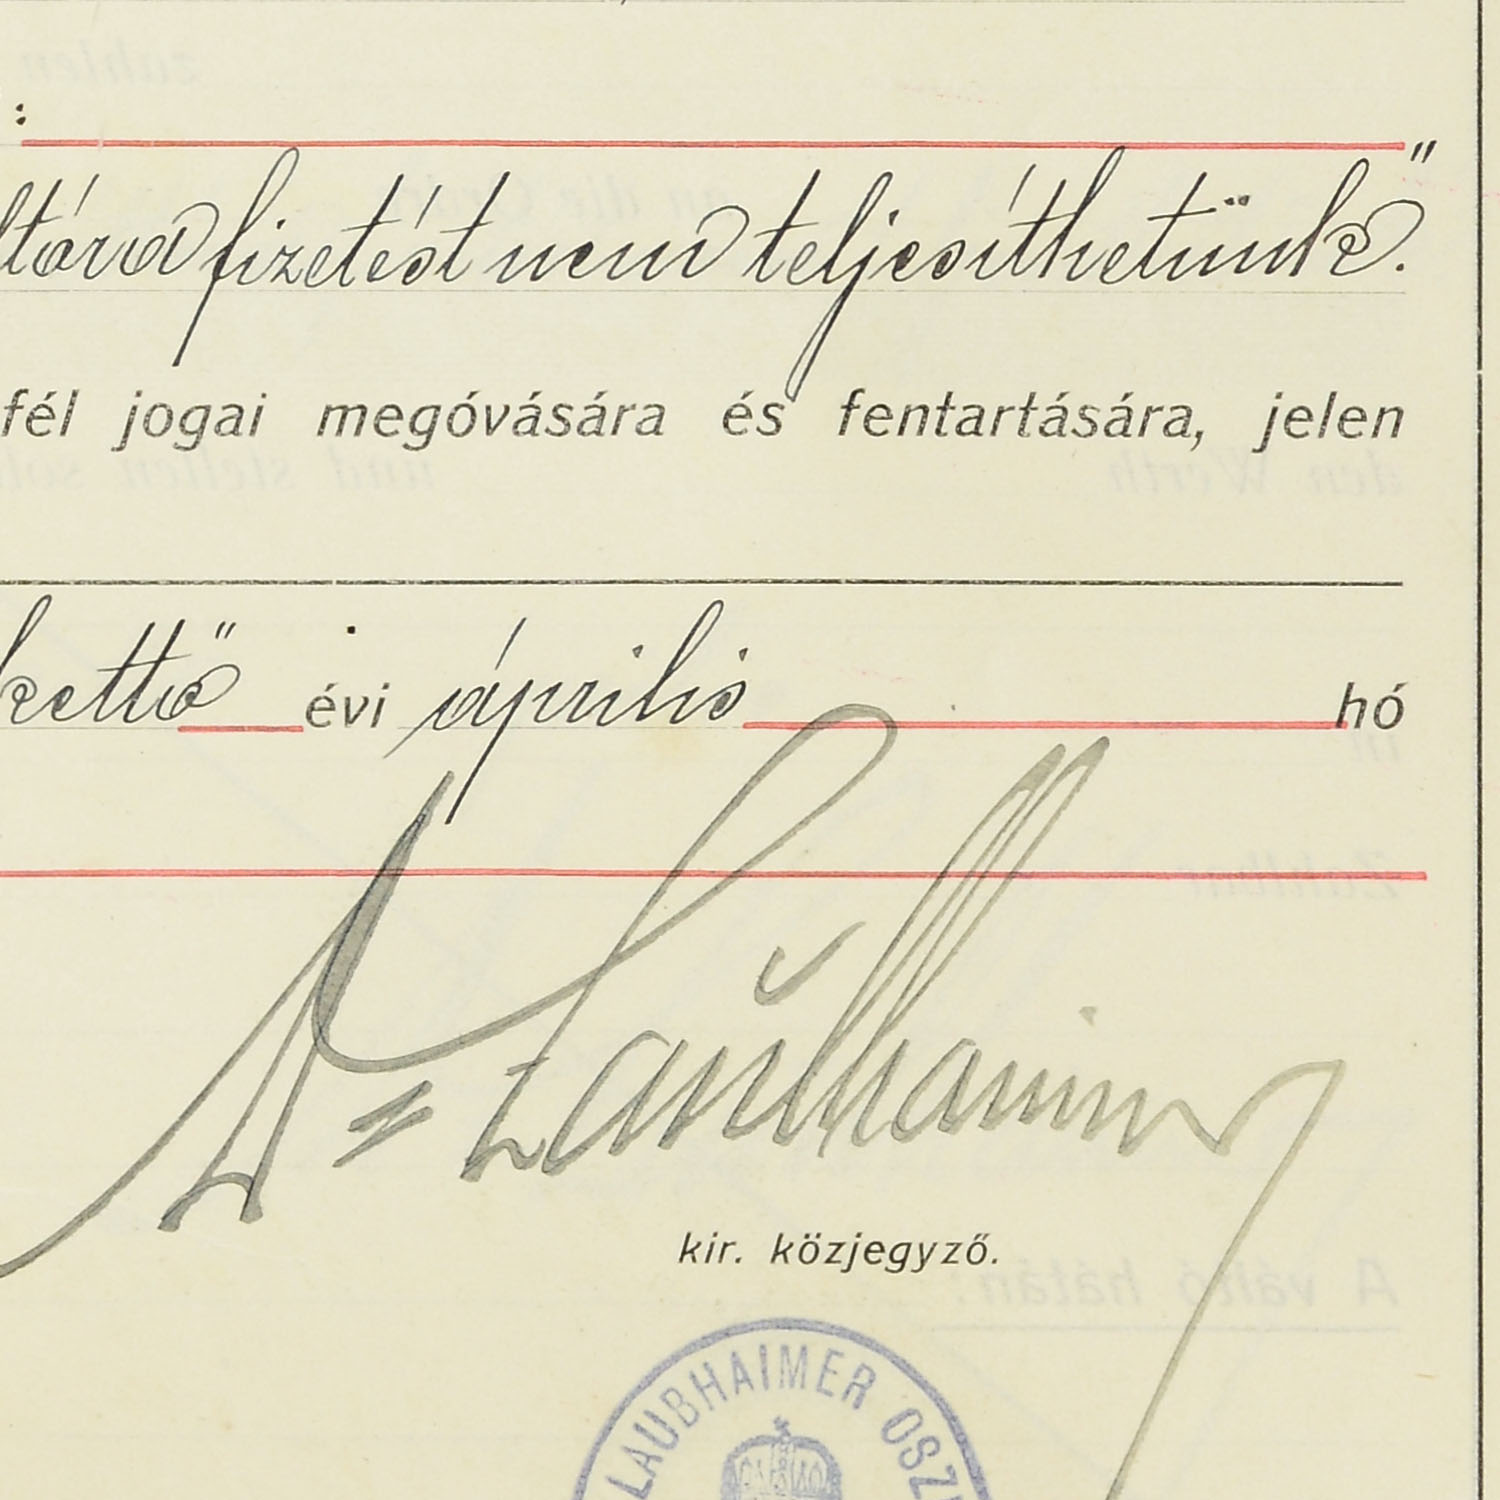 :
ltára fizetést nem teljesíthetünk."
fél jogai megóvására és fentartására, jelen
kettő évi április hó
Dr Laubhaimer
kir. közjegyző.
LAUBHAIMER OSZ